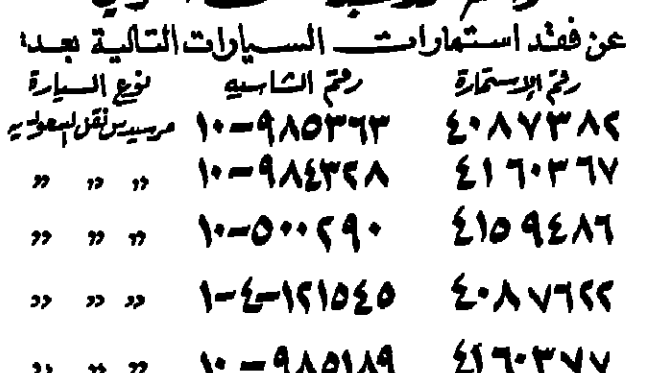 عن فقد استمارات السيارات التالية بعد:
رقم الإستمارة رقم الشاسيه نوع السيارة
٤٠٨٧٣٨٢ ١٠-٩٨٥٣٦٣ مرسيدس نقل
٤١٦٠٣٦٧ ١٠-٩٨٤٣٢٨ " " "
٤١٥٩٤٨٦ ١٠-٥٠٠٢٩٠ " " "
٤٠٨٧٦٢٢ ١-٤-١٢١٥٤٥ " " "
٤١٦٠٣٧٧ ١٠-٩٨٥١٨٩ " " "